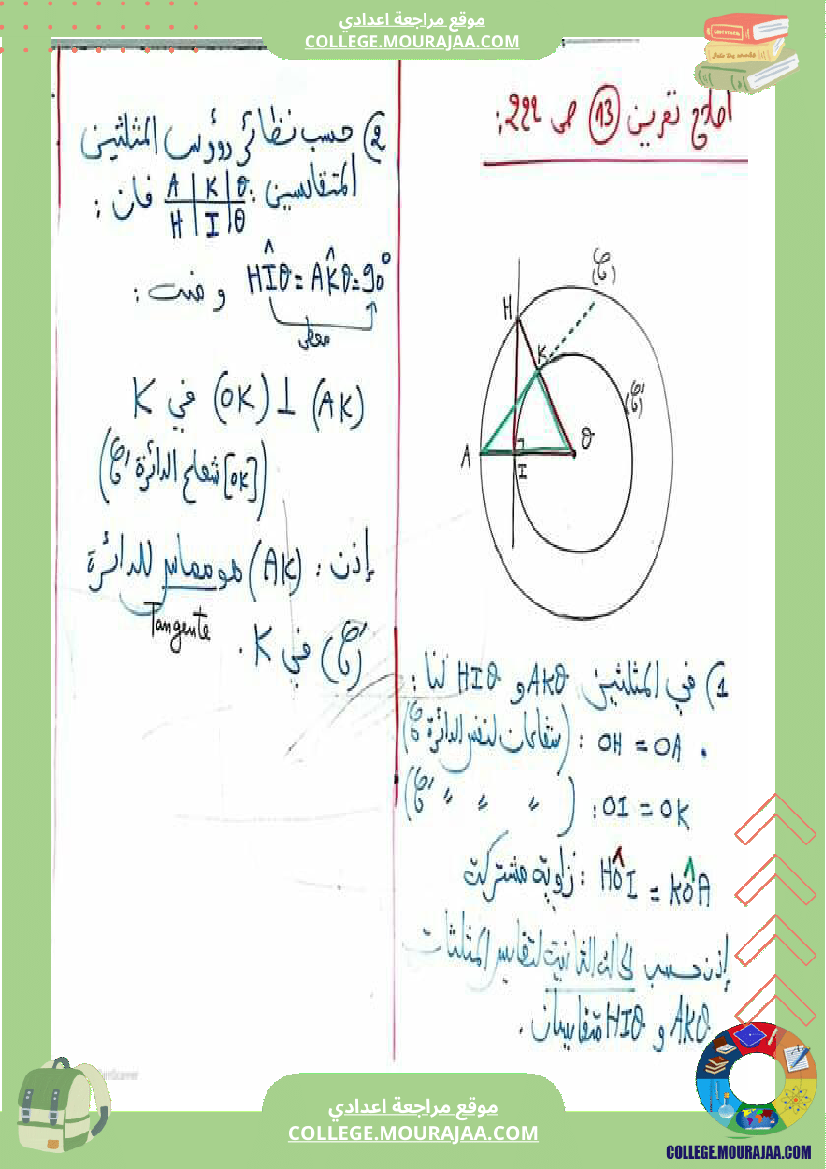 موقع مراجعة اعدادي
COLLEGE.MOURAJAA.COM
اصلاح تمرين 13 ص 222:
H
K
A
I
O
(𝒞)
(𝒞')
1) في المثلثين AKO و HIO لنا:
• OH = OA : (شعاعات لنفس الدائرة 𝒞)
OI = OK : ( " " " 𝒞')
HÔI = KÔA : زاوية مشتركة
إذن حسب الحالة الثانية لتقايس المثلثات
AKO و HIO متقايسان.
2) حسب نظائر رؤوس المثلثين
المتقايسين: A | K | O فان:
H | I | O
HÎO = AK̂O = 90° ومنه:
معطى
(AK) ⊥ (OK) في K
([OK] شعاع الدائرة 𝒞')
إذن: (AK) هو مماس للدائرة
Tangente
(𝒞') في K.
موقع مراجعة اعدادي
COLLEGE.MOURAJAA.COM
COLLEGE.MOURAJAA.COM